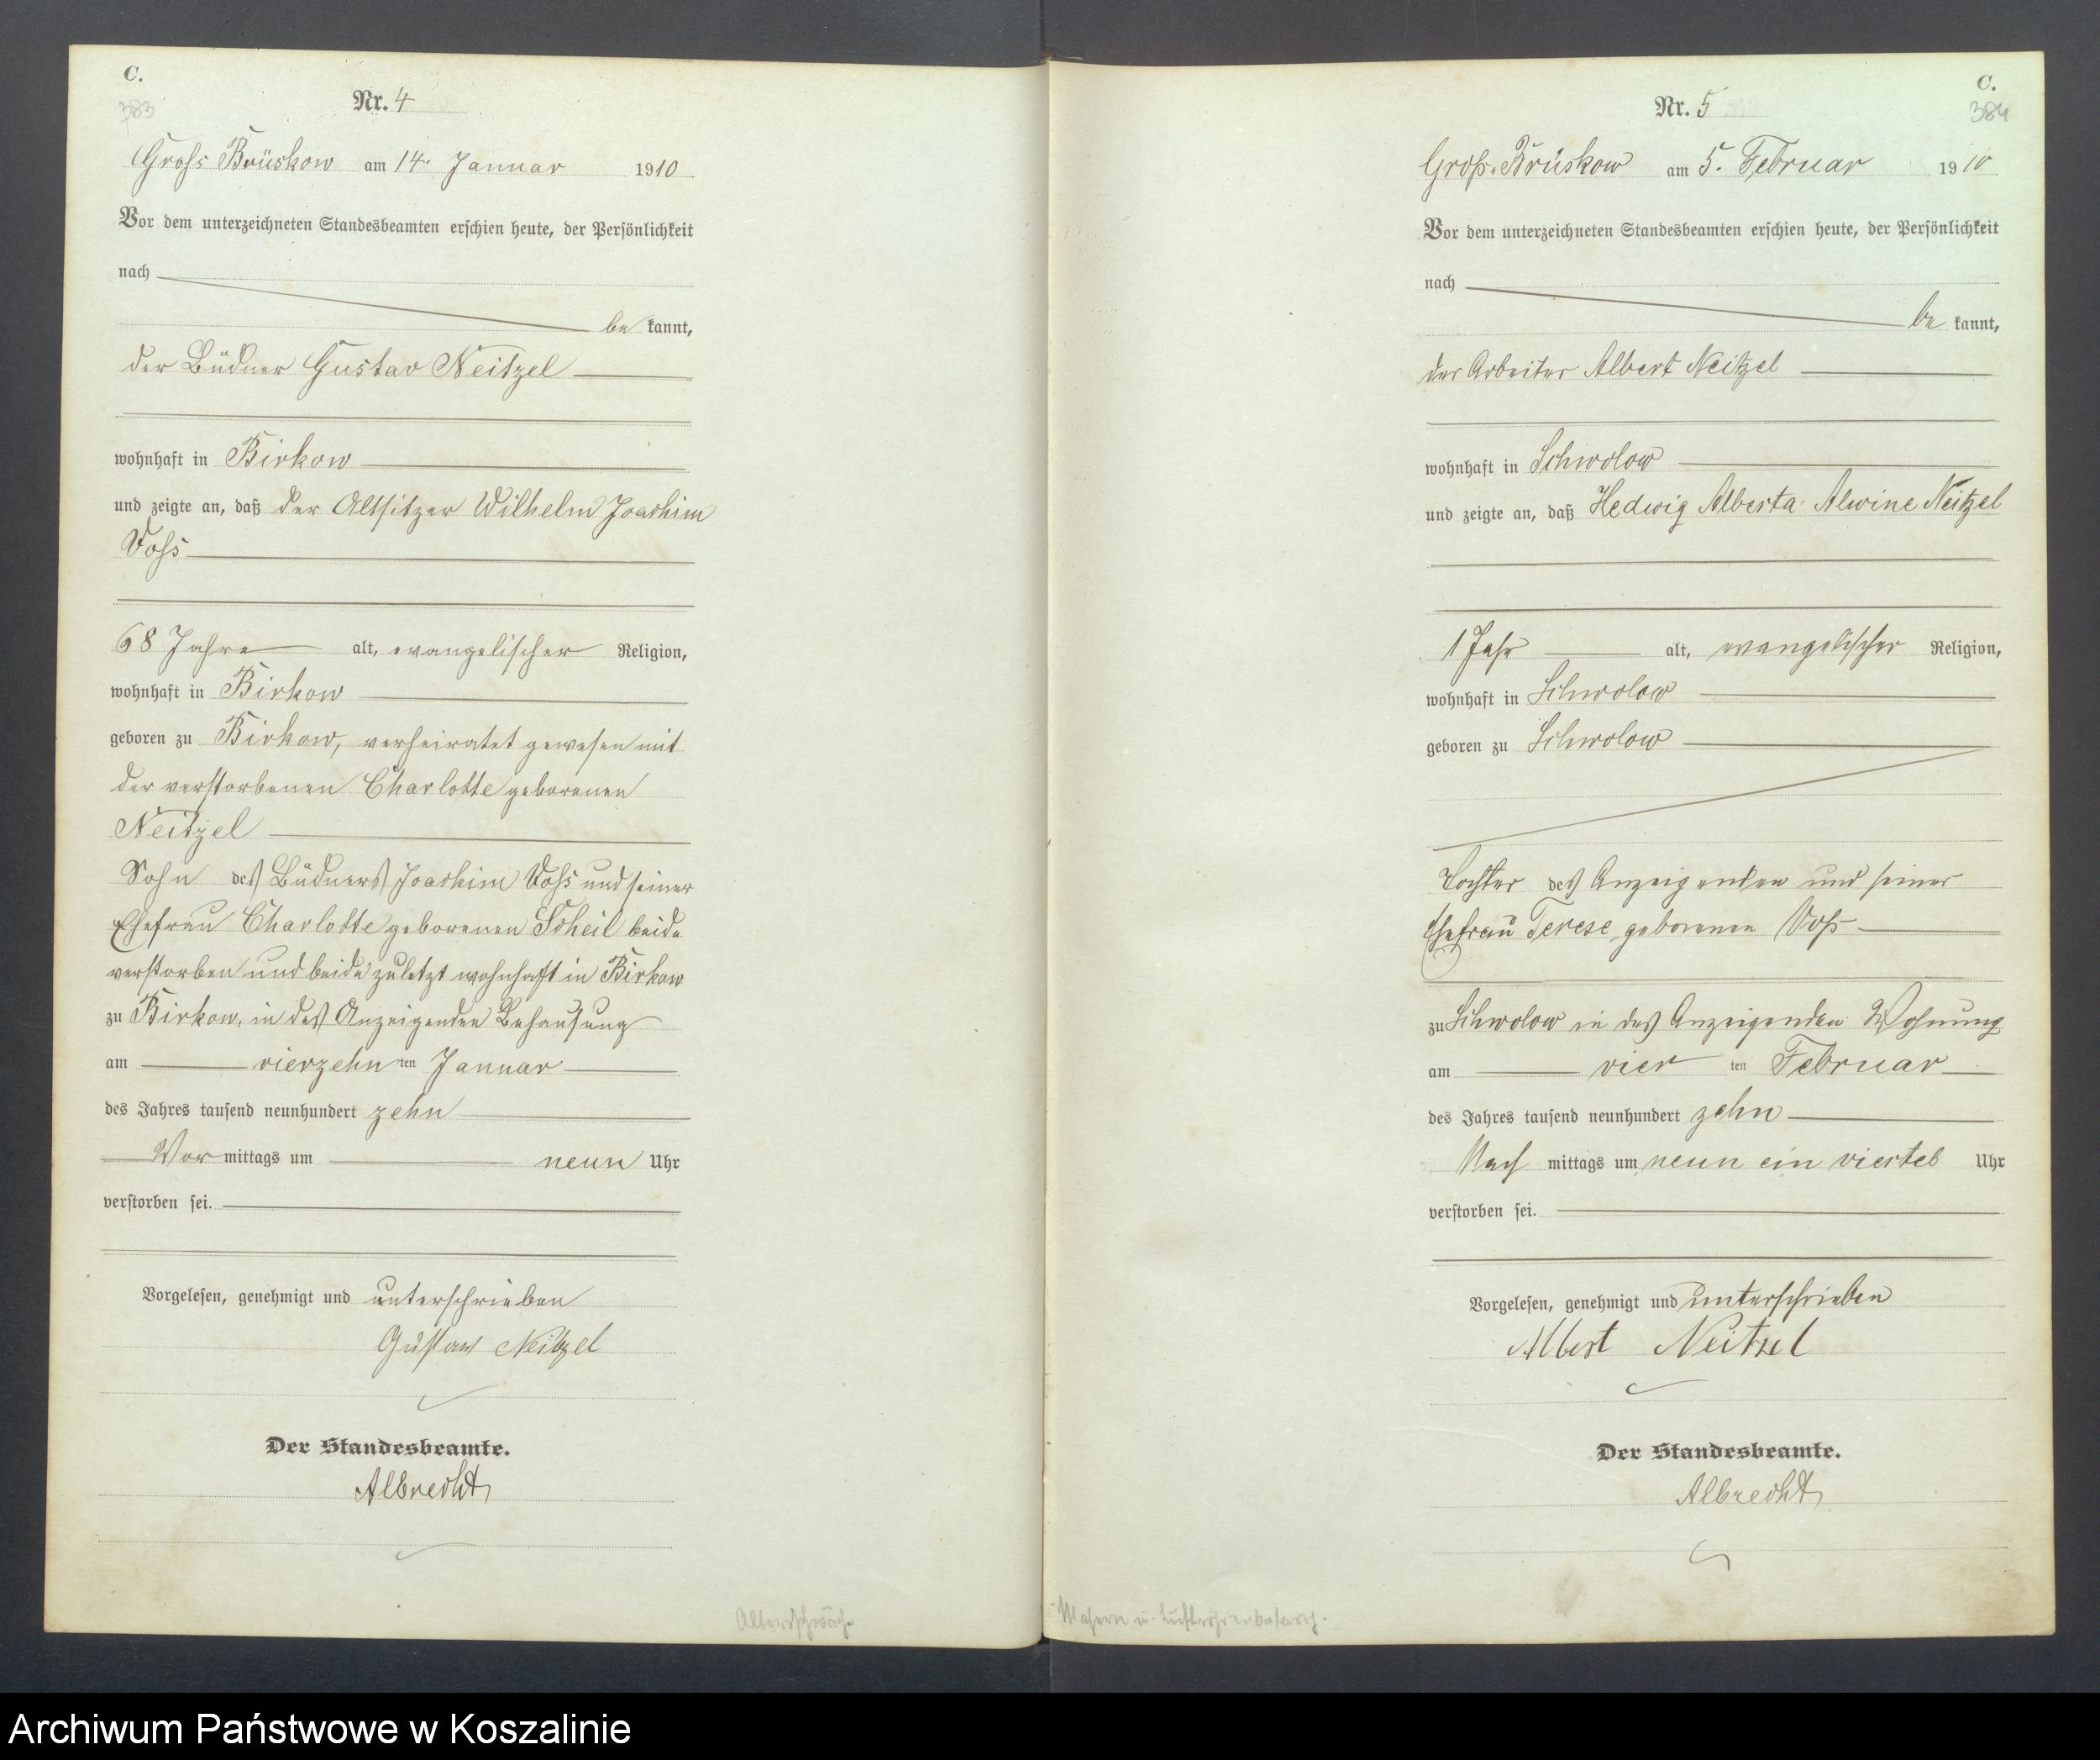 C.
383
Nr. 4
Gross Brüskow am 14. Januar 1910
Vor dem unterzeichneten Standesbeamten erschien heute, der Persönlichkeit
nach
be kannt,
der Büdner Gustav Neitzel
wohnhaft in Birkow
und zeigte an, daß der Altsitzer Wilhelm Joachim
Voss
68 Jahre alt, evangelischer Religion,
wohnhaft in Birkow
geboren zu Birkow, verheiratet gewesen mit
der verstorbenen Charlotte geborenen
Neitzel
Sohn des Büdners Joachim Voss und seiner
Ehefrau Charlotte geborenen Scheil beide
verstorben und beide zuletzt wohnhaft in Birkow
zu Birkow, in des Anzeigenden Behausung
am vierzehn ten Januar
des Jahres tausend neunhundert zehn
Vor mittags um neun Uhr
verstorben sei.
Vorgelesen, genehmigt und unterschrieben
Gustav Neitzel
Der Standesbeamte.
Albrecht
Altersschwäche
C.
384
Nr. 5
Groß-Brüskow am 5. Februar 1910
Vor dem unterzeichneten Standesbeamten erschien heute, der Persönlichkeit
nach
be kannt,
der Arbeiter Albert Neitzel
wohnhaft in Schwolow
und zeigte an, daß Hedwig Alberta Alwine Neitzel
1 Jahr alt, evangelischer Religion,
wohnhaft in Schwolow
geboren zu Schwolow
Tochter des Anzeigenden und seiner
Ehefrau Terese geborenen Voß
zu Schwolow in des Anzeigenden Wohnung
am vier ten Februar
des Jahres tausend neunhundert zehn
Nach mittags um neun ein viertel Uhr
verstorben sei.
Vorgelesen, genehmigt und unterschrieben
Albert Neitzel
Der Standesbeamte.
Albrecht
Masern u.
Archiwum Państwowe w Koszalinie